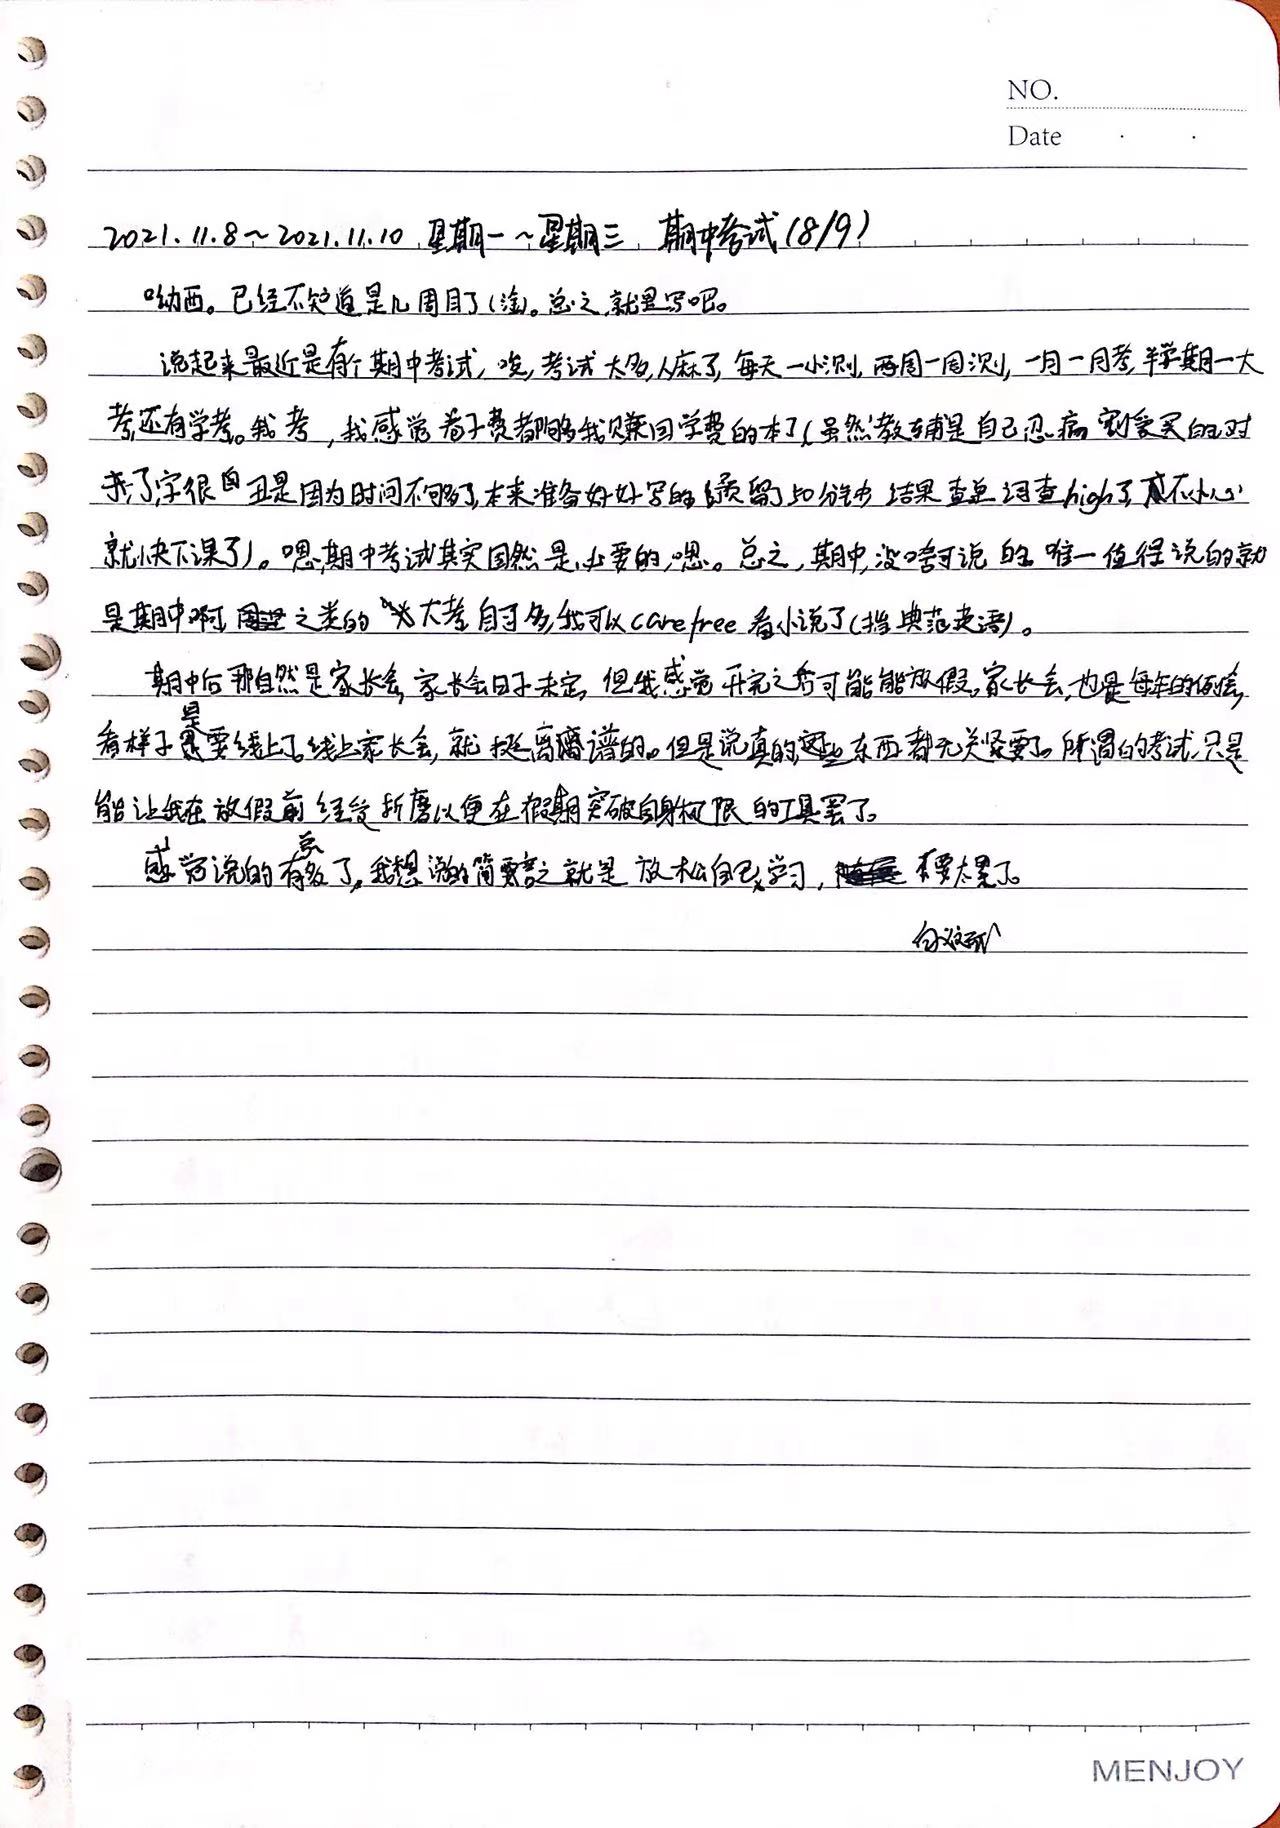 NO.
Date
2021.11.8～2021.11.10 星期一～星期三 期中考试(8/9)
呦西。已经不知道是几周目了(泣)。总之,就是写吧。
说起来最近是有个期中考试,唉,考试太多,人麻了,每天一小测,两周一周测,一月一月考,半学期一大
考,还有学考。我考,我感觉卷子费都够我赚回学费的本了(虽然教辅是自己忍痛割爱买的,对
了,字很丑是因为时间不够了,本来准备好好写的,预留了50分钟,结果查单词查high了,不小心
就快下课了)。嗯,期中考试其实固然是必要的,嗯。总之,期中,没啥可说的,唯一值得说的就
是期中啊,之类的大考自习多,我可以carefree看小说了(指典范英语)。
期中后那自然是家长会,家长会日子未定,但我感觉开完之后可能能放假。家长会,也是每年的俗会,
看样子是要线上了。线上家长会,就挺离谱的。但是说真的,这些东西都无关紧要了。所谓的考试,只是
能让我在放假前经受折磨以便在假期突破自身极限的工具罢了。
感觉说的有点多了,我想说的简要言之就是放松自己,学习,不要太累了。
MENJOY